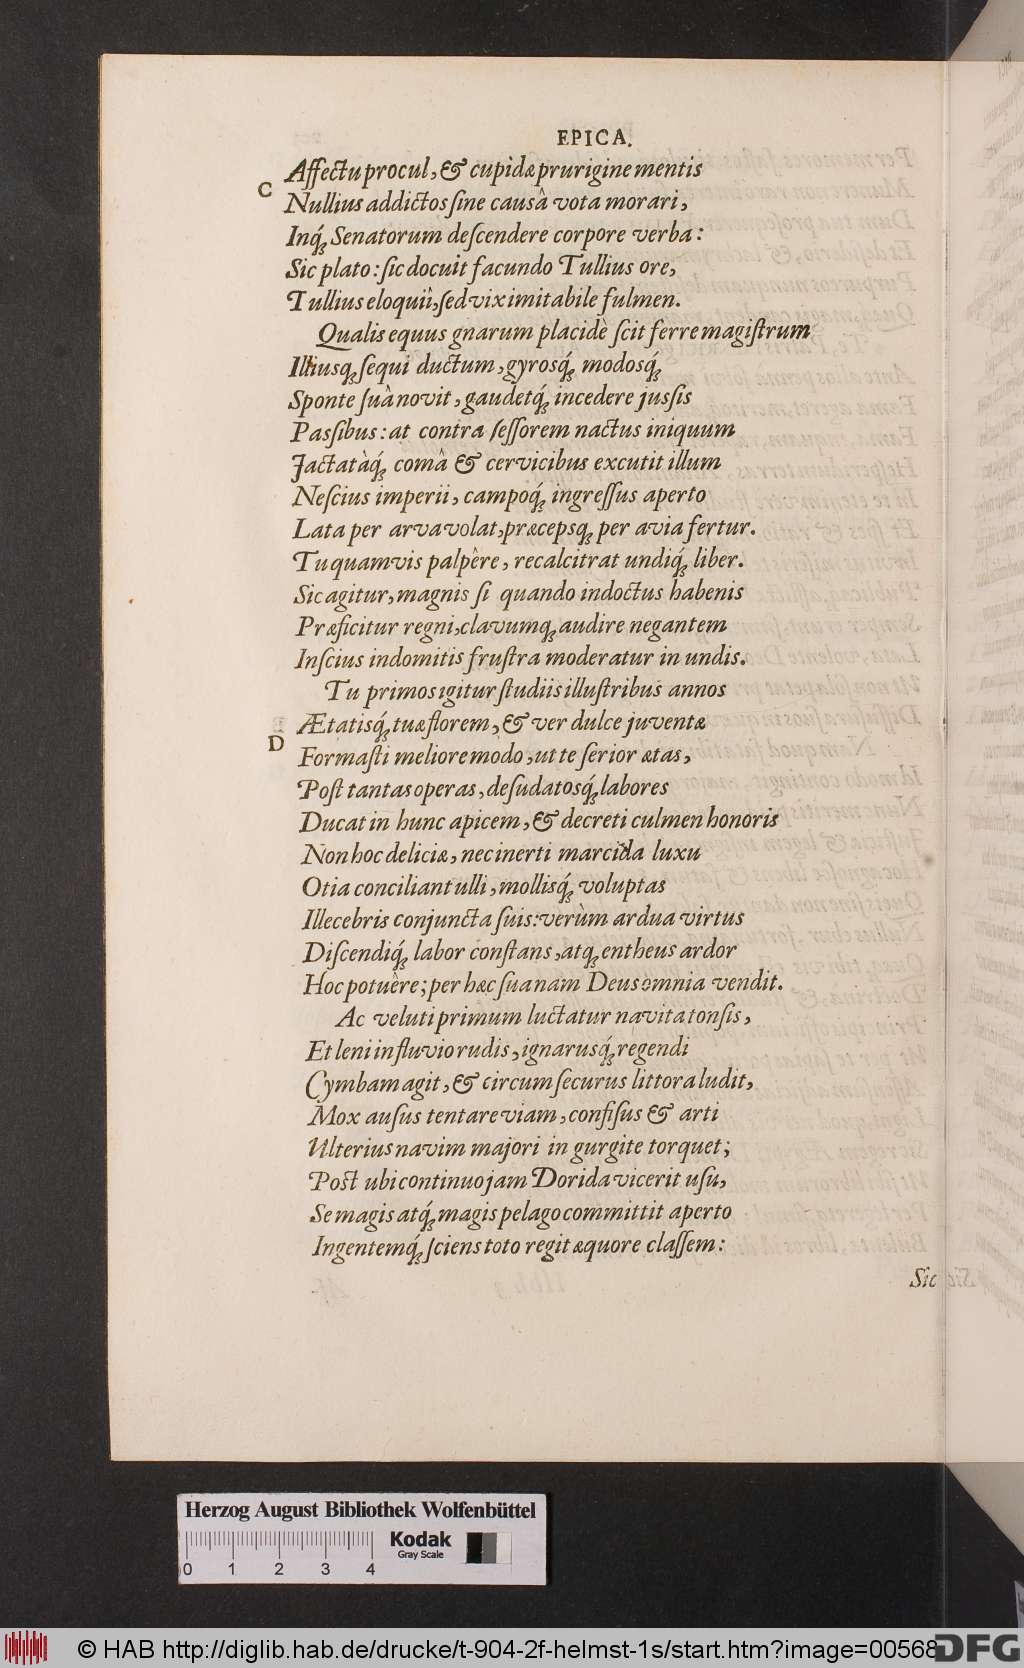 EPICA.
Affectu procul, & cupìdæ prurigine mentis
C
Nullius addictos ſine causâ vota morari,
Inq́; Senatorum deſcendere corpore verba:
Sic plato: ſic docuit facundo Tullius ore,
Tullius eloquiî, ſed vix imitabile fulmen.
Qualis equus gnarum placidè ſcit ferre magiſtrum
Illiusq; ſequi ductum, gyrosq́; modosq́;
Sponte ſuâ novit, gaudetq́; incedere juſsis
Paſsibus: at contra ſeſſorem nactus iniquum
Jactatàq́; comâ & cervicibus excutit illum
Neſcius imperii, campoq́; ingreſſus aperto
Lata per arva volat, præcepsq; per avia fertur.
Tu quamvis palpêre, recalcitrat undiq́; liber.
Sic agitur, magnis ſi quando indoctus habenis
Præficitur regni, clavumq; audire negantem
Inſcius indomitis fruſtra moderatur in undis.
Tu primos igitur ſtudiis illuſtribus annos
Ætatisq́; tuæ florem, & ver dulce juventæ
D
Formaſti meliore modo, ut te ſerior ætas,
Poſt tantas operas, deſudatosq́; labores
Ducat in hunc apicem, & decreti culmen honoris
Non hoc deliciæ, nec inerti marcida luxu
Otia conciliant ulli, mollisq́; voluptas
Illecebris conjuncta ſuis: verùm ardua virtus
Diſcendiq́; labor conſtans, atq; entheus ardor
Hoc potuêre; per hæc ſua nam Deus omnia vendit.
Ac veluti primum luctatur navita tonſis,
Et leni in fluvio rudis, ignarusq́; regendi
Cymbam agit, & circum ſecurus littora ludit,
Mox auſus tentare viam, confiſus & arti
Ulterius navim majori in gurgite torquet;
Poſt ubi continuo jam Dorida vicerit uſu,
Se magis atq́; magis pelago committit aperto
Ingentemq́; ſciens toto regit æquore claſſem:
Sic
Herzog August Bibliothek Wolfenbüttel
Kodak
Gray Scale
0 1 2 3 4
© HAB http://diglib.hab.de/drucke/t-904-2f-helmst-1s/start.htm?image=00568
DFG